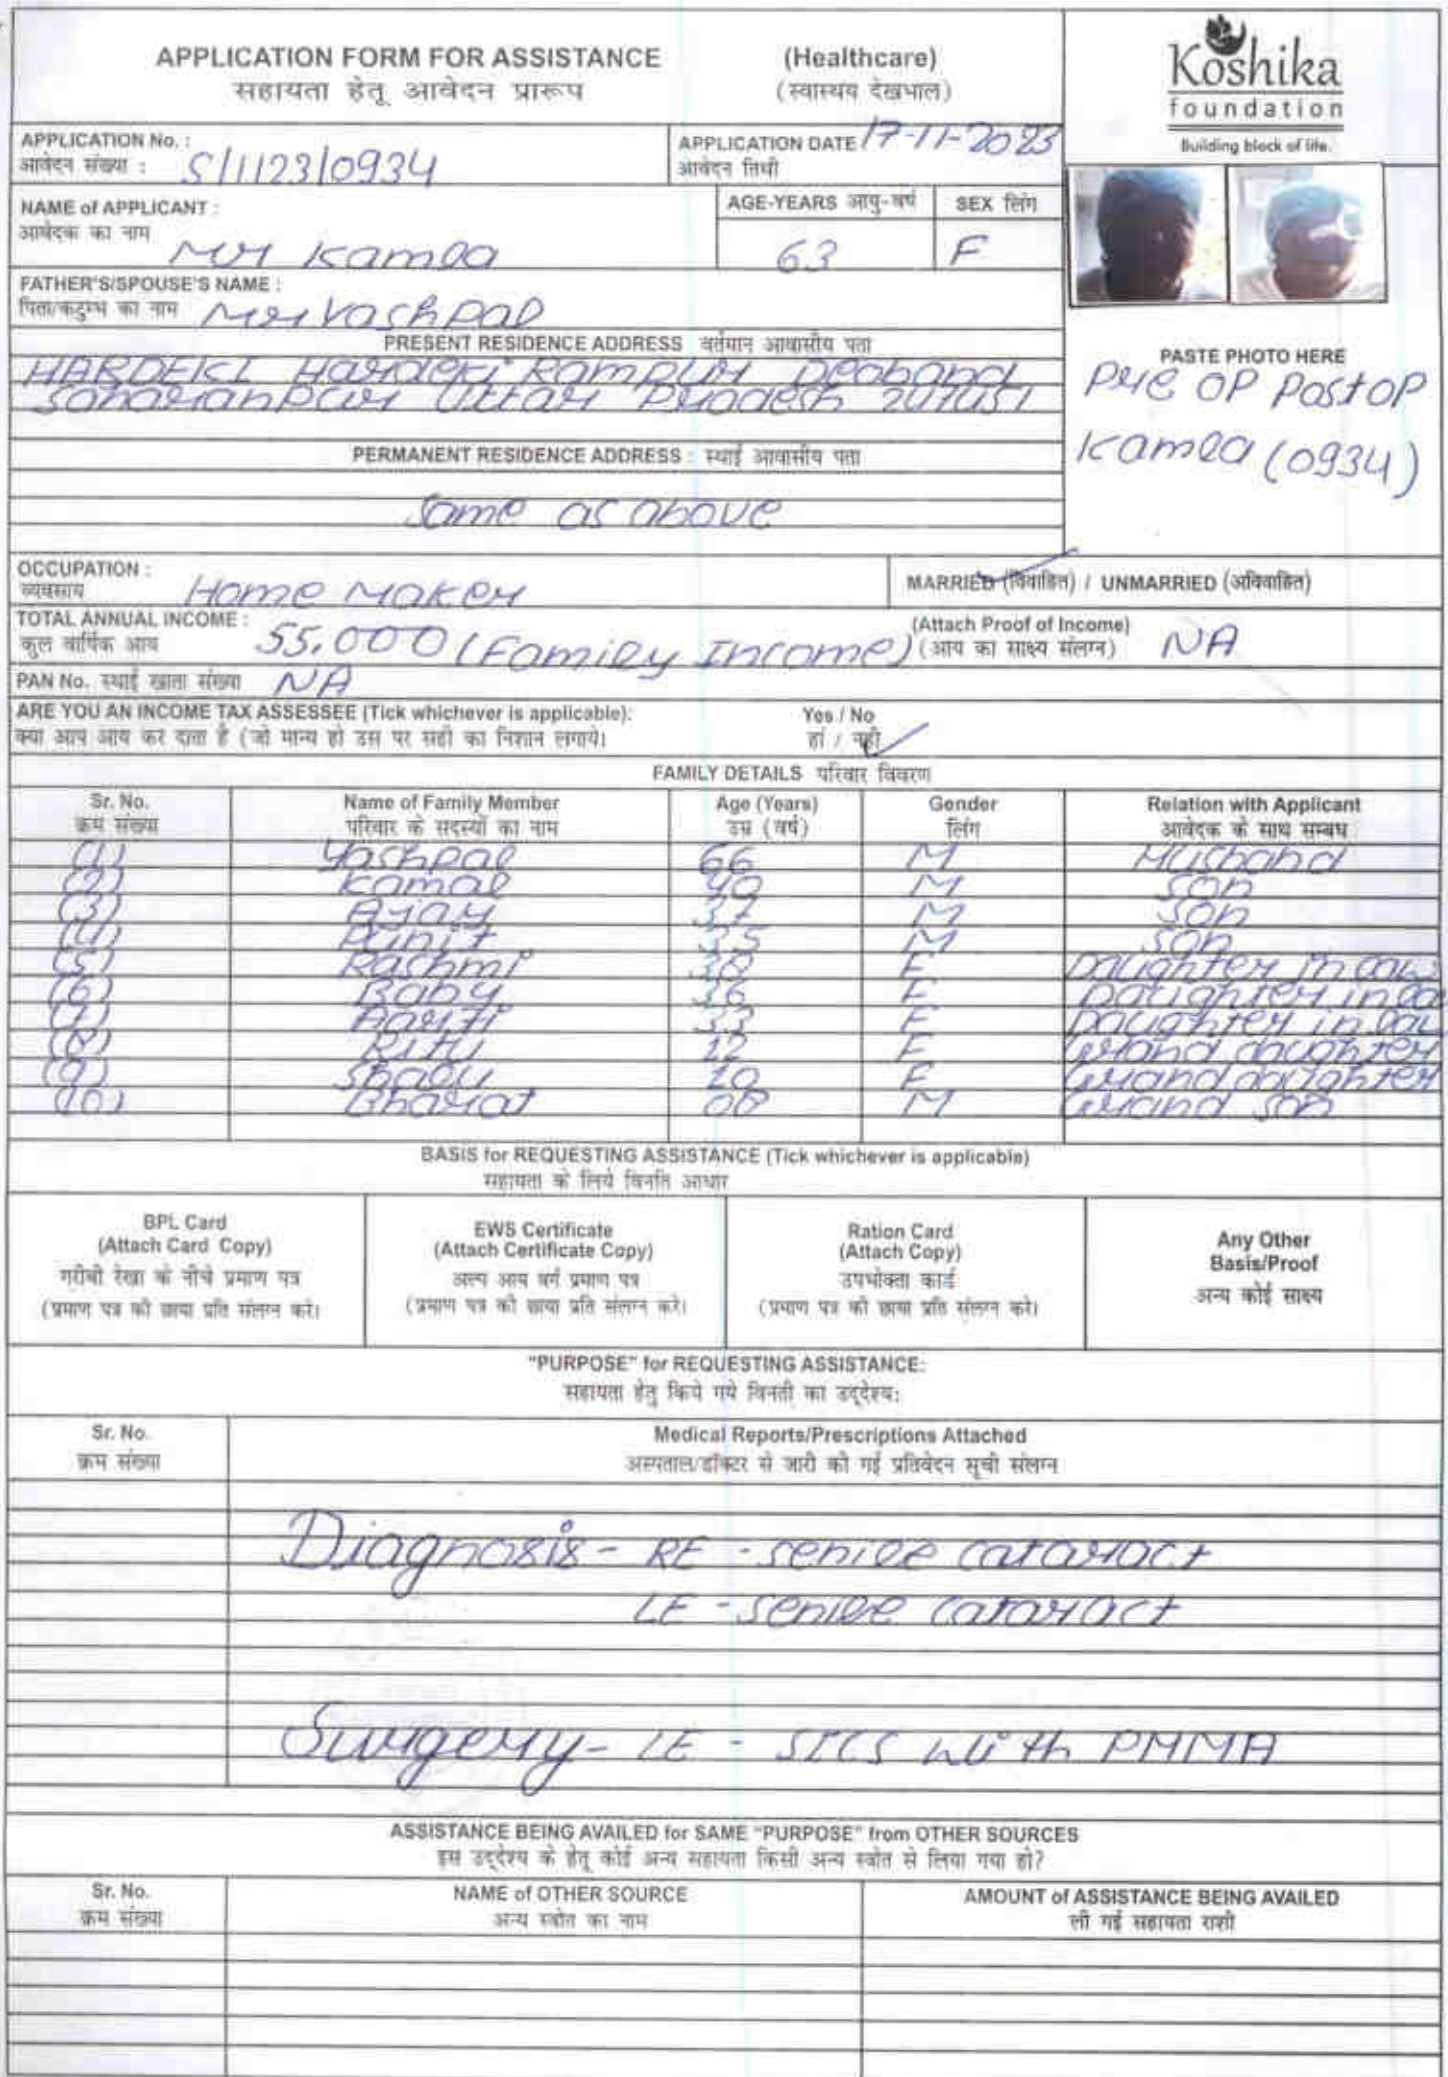 APPLICATION FORM FOR ASSISTANCE (Healthcare)
सहायता हेतू आवेदन प्रारूप (स्वास्थय देखभाल)
Koshika
foundation
Building block of life.
APPLICATION No. : S/1123/0934 APPLICATION DATE 17-11-2023
आवेदन संख्या : आवेदन तिथी
NAME of APPLICANT : AGE-YEARS आयु-वर्ष SEX लिंग
आवेदक का नाम Kamla 63 F
FATHER'S/SPOUSE'S NAME :
पिता/कटुम्ब का नाम Yashpal
PRESENT RESIDENCE ADDRESS वर्तमान आवासीय पता
HARDEKI Hardeki Rampur Deoband
Saharanpur Uttar Pradesh 247451
PASTE PHOTO HERE
Pre OP Post OP
Kamla (0934)
PERMANENT RESIDENCE ADDRESS : स्थाई आवासीय पता
Same as above
OCCUPATION :
व्यवसाय Home Maker MARRIED (विवाहित) / UNMARRIED (अविवाहित)
TOTAL ANNUAL INCOME : (Attach Proof of Income)
कुल वार्षिक आय 55,000 (Family Income) (आय का साक्ष्य संलग्न) NA
PAN No. स्थाई खाता संख्या NA
ARE YOU AN INCOME TAX ASSESSEE (Tick whichever is applicable): Yes / No
क्या आप आय कर दाता है (जो मान्य हो उस पर सही का निशान लगाये। हां / नहीं
FAMILY DETAILS परिवार विवरण
Sr. No. Name of Family Member Age (Years) Gender Relation with Applicant
क्रम संख्या परिवार के सदस्यों का नाम उम्र (वर्ष) लिंग आवेदक के साथ सम्बध
(1) Yashpal 66 M Husband
(2) Kamal 40 M Son
(3) Ajay 37 M Son
(4) Punit 35 M Son
(5) Rashmi 38 F Daughter in law
(6) Baby 36 F Daughter in la
(7) Aarti 33 F Daughter in law
(8) Ritu 12 F Grand daughter
(9) 10 F Grand daughter
(10) Bharat 08 M Grand son
BASIS for REQUESTING ASSISTANCE (Tick whichever is applicable)
सहायता के लिये विनति आधार
BPL Card
(Attach Card Copy)
गरीबी रेखा के नीचे प्रमाण पत्र
(प्रमाण पत्र की छाया प्रति संलग्न करे।
EWS Certificate
(Attach Certificate Copy)
अल्प आय वर्ग प्रमाण पत्र
(प्रमाण पत्र की छाया प्रति संलग्न करे।
Ration Card
(Attach Copy)
उपभोक्ता कार्ड
(प्रमाण पत्र की छाया प्रति संलग्न करे।
Any Other
Basis/Proof
अन्य कोई साक्ष्य
"PURPOSE" for REQUESTING ASSISTANCE:
सहायता हेतु किये गये विनती का उद्देश्य:
Sr. No. Medical Reports/Prescriptions Attached
क्रम संख्या अस्पताल/डॉक्टर से जारी की गई प्रतिवेदन सूची संलग्न
Diagnosis - RE - senile cataract
LE - senile cataract
Surgery - LE - SICS with PMMA
ASSISTANCE BEING AVAILED for SAME "PURPOSE" from OTHER SOURCES
इस उद्देश्य के हेतू कोई अन्य सहायता किसी अन्य स्त्रोत से लिया गया हो?
Sr. No. NAME of OTHER SOURCE AMOUNT of ASSISTANCE BEING AVAILED
क्रम संख्या अन्य स्त्रोत का नाम ली गई सहायता राशी